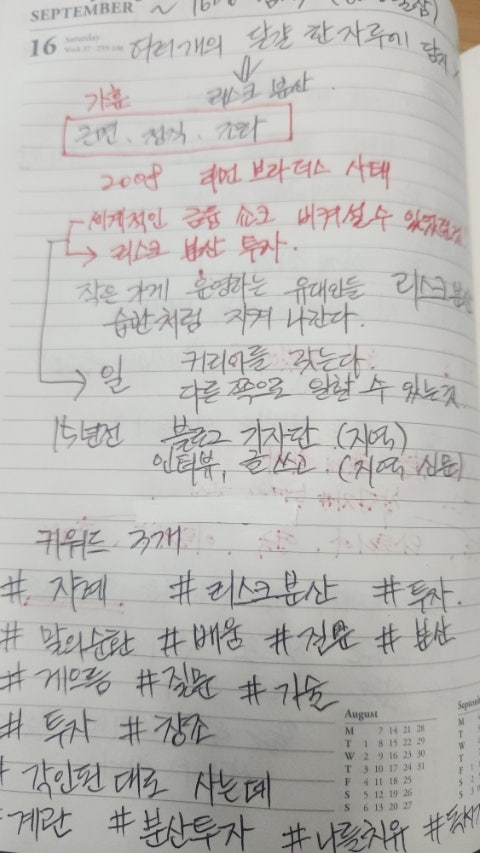 SEPTEMBER
16 Saturday
여러개의 달걀 한 자루에 담지
리스크 분산
가훈
근면 . 정직 .
2008 리먼 브라더스 사태
세계적인 금융 쇼크 비켜설수
리스크 분산 투자 .
작은 가게 운영하는 유대인들 리스크분산
습관처럼 지켜 나간다.
일 커리어를 갖는다.
다른 쪽으로 일할 수 있는것.
15년전 블로그 기자단 (지역)
인터뷰, 글쓰고 (지역 신문)
키워드 3개
# 지혜 # 리스크분산 # 투자.
# 말의순환 # 배움 # 질문 # 분산
# 게으름 # 질문 # 기술
# 투자 # 장소
# 각인된 대로 사는데
# 계란 # 분산투자 # 나를치유
August
M 7 14 21 28
T 1 8 15 22 29
W 2 9 16 23 30
T 3 10 17 24 31
F 4 11 18 25
S 5 12 19 26
S 6 13 20 27
M
T
W
T
F 1
S 2
S 3